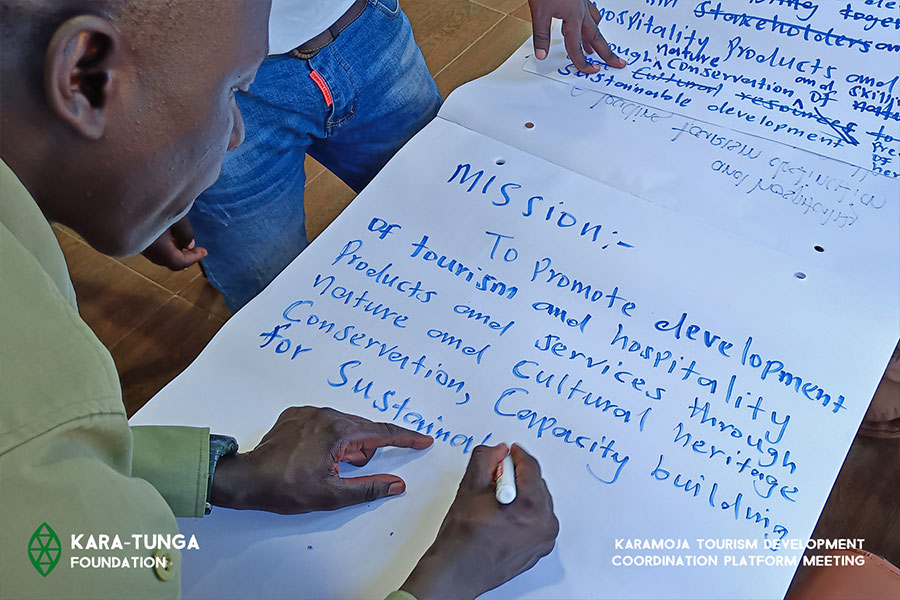 stakeholders an
hospitality Products and
nature
Conservation OF
and skill
Cultural resources to
Sustainable development
MISSION:-
To Promote development
OF tourism and hospitality
Products and services through
Nature and Cultural heritage
Conservation, Capacity building
for Sustainab
KARA-TUNGA
FOUNDATION
KARAMOJA TOURISM DEVELOPMENT
COORDINATION PLATFORM MEETING